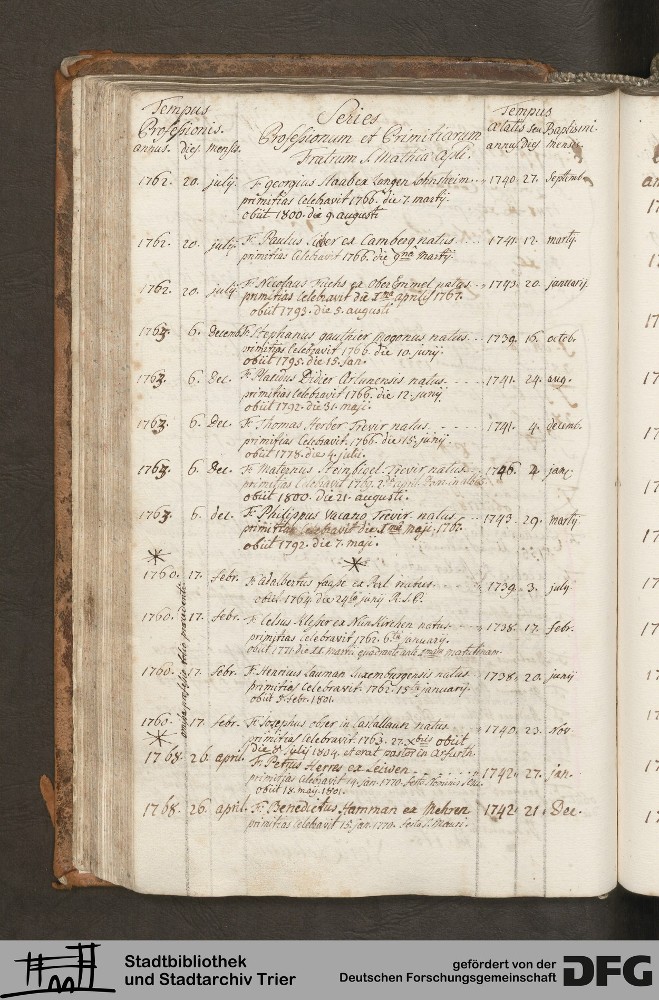 Tempus
Professionis.
annus. dies mensis.
Series
Professionum et Primitiarum
Fratrum S. Mathiæ Apli.
Tempus
ætatis seu Baptismi
annus dies menses
1762. 20. julij. F. georgius Staubex Langen Lohnsheim.. 1740. 27. Septemb.
primitias Celebravit 1766. die 7. martij.
obiit 1800. die 9. augusti
1762. 20. julij F. Paulus ex Camberg natus.... 1741. 12. martij.
primitias Celebravit 1766. die 9na martij.
1762. 20. julij F. Nicolaus Fuchs ex Ober Emmel natus.. 1743. 20. januarij.
primitias Celebravit die 1ma aprilis 1767.
obiit 1793. die 5. augusti
1763. 6. Decemb. F. Stephanus gauthier natus.. 1739. 16. octob.
primitias Celebravit 1766. die 10. junij.
obiit 1795. die 15. jan.
1763. 6. Dec. F. Placidus Didier Arlunensis natus.... 1741. 24. aug.
primitias Celebravit 1766. die 12. junij
obiit 1792. die 31. maji.
1763. 6. Dec. F. Thomas Herber Trevir natus..... 1741. 4. decemb.
primitias Celebravit. 1766. die 15. junij.
obiit 1778. die 4. julii.
1763. 6. Dec. F. Maternus Steinbigel Trevir natus... 1746. 4. jan.
primitias Celebravit 1769. april. Dom. in albis
obiit 1800. die 21. augusti.
1763. 6. dec. F. Philippus Vacano Trevir natus... 1743. 29. martij
primitias Celebravit die 1ma maji. 1767.
obiit 1792. die 7. maji.
omissa professio folio præcedenti
1760. 17. febr. F. adalbertus ex Perl natus... 1739. 3. july.
obiit 1764. die 24ta junij R.I.P.
1760. 17. febr. F. Celsus Kleser ex Nünkirchen natus... 1738. 17. febr.
primitias Celebravit 1762. 6ta januarij.
obiit 1771. die martii quadrante ante matutinam.
1760. 17. febr. F. Henricus Lauman Luxemburgensis natus.. 1738. 20. junij
primitias Celebravit. 1762. 15ta januarij.
obiit 5. febr. 1801.
1760. 17. febr F. Josephus ober in Castallaun natus... 1740. 23. nov.
primitias Celebravit 1763. 27. Xbris obiit
die 8. Julij 1804. et erat pastor in
1768. 26. april. F. Petrus Herres ex Leiwen....... 1742. 27. jan.
primitias Celebravit 14. jan. 1770. festo Nominis Jesu.
obiit 18. maij 1801.
1768. 26. april. F. Benedictus Hamman ex Mehren 1742. 21. Dec.
primitias Celebravit 15. jan. 1770. festo S. Mauri.
Stadtbibliothek
und Stadtarchiv Trier
gefördert von der
Deutschen Forschungsgemeinschaft
DFG